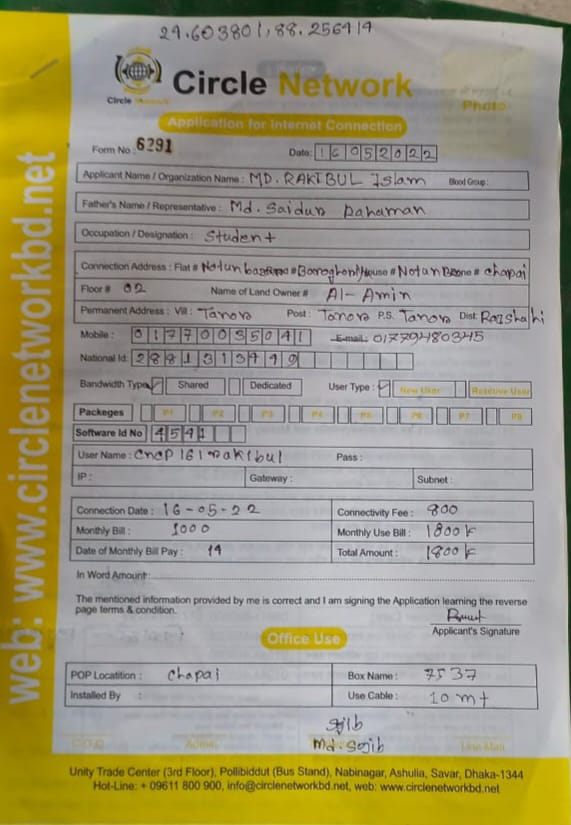 Circle Network
Circle Network
Photo
Application for Internet Connection
Form No : 6291
Date: 16052022
Applicant Name / Organization Name : MD. RAKIBUL Islam Blood Group :
Father's Name / Representative : Md. Saidur Rahaman
Occupation / Designation : Student
Connection Address : Flat # Road # House # Notun Zone # chapai
Floor # 02 Name of Land Owner # Al-Amin
Permanent Address : Vill : Tanore Post : Tanore P.S. Tanore Dist. Rajshahi
Mobile : 01770035041 E-mail: 01779480345
National Id: 2881313449
Bandwidth Type Shared Dedicated User Type : New User Reactive User
Packeges P1 P2 P3 P4 P5 P6 P7 P8
Software Id No 4541
User Name : cncp161rakibul Pass :
IP : Gateway : Subnet :
Connection Date : 16-05-22 Connectivity Fee : 800
Monthly Bill : 1000 Monthly Use Bill : 1800 k
Date of Monthly Bill Pay : 14 Total Amount : 1800 k
In Word Amount:
The mentioned information provided by me is correct and I am signing the Application learning the reverse
page terms & condition.
Applicant's Signature
Office Use
POP Locatition : Chapai Box Name : 7537
Installed By : Use Cable : 10 mt
Md. Sojib
Admin Line Man
Unity Trade Center (3rd Floor), Pollibiddut (Bus Stand), Nabinagar, Ashulia, Savar, Dhaka-1344
Hot-Line: + 09611 800 900, info@circlenetworkbd.net, web: www.circlenetworkbd.net
web: www.circlenetworkbd.net